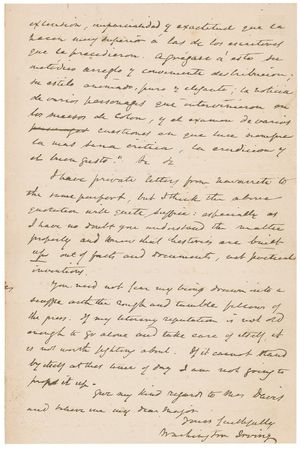 extension, imparcialidad y exactitud que la
hacen muy superior á las de los escritores
que le precedieron. Agregase á esto su
metodico arreglo y conveniente distribucion;
su estilo animado, puro y elegante; la noticia
de varios personages que intervinieron en
los sucesos de Colon, y el examen de varias
cuestiones en que luce siempre
la mas sana critica, la erudicion y
el buen gusto." &c &c
I have private letters from Navarrete to
the same purport, but I think the above
quotation will quite suffice: especially as
I have no doubt you understand the matter
properly and know that histories are built
up out of facts and documents, not poetical
inventions.
You need not fear my being drawn into a
scuffle with the rough and tumble fellows of
the press. If my literary reputation is not old
enough to go alone and take care of itself it
is not worth fighting about. If it cannot stand
by itself at this time of day I am not going to
prop it up.
Give my kind regards to Mrs Davis
and believe me my dear Major
Yours faithfully
Washington Irving